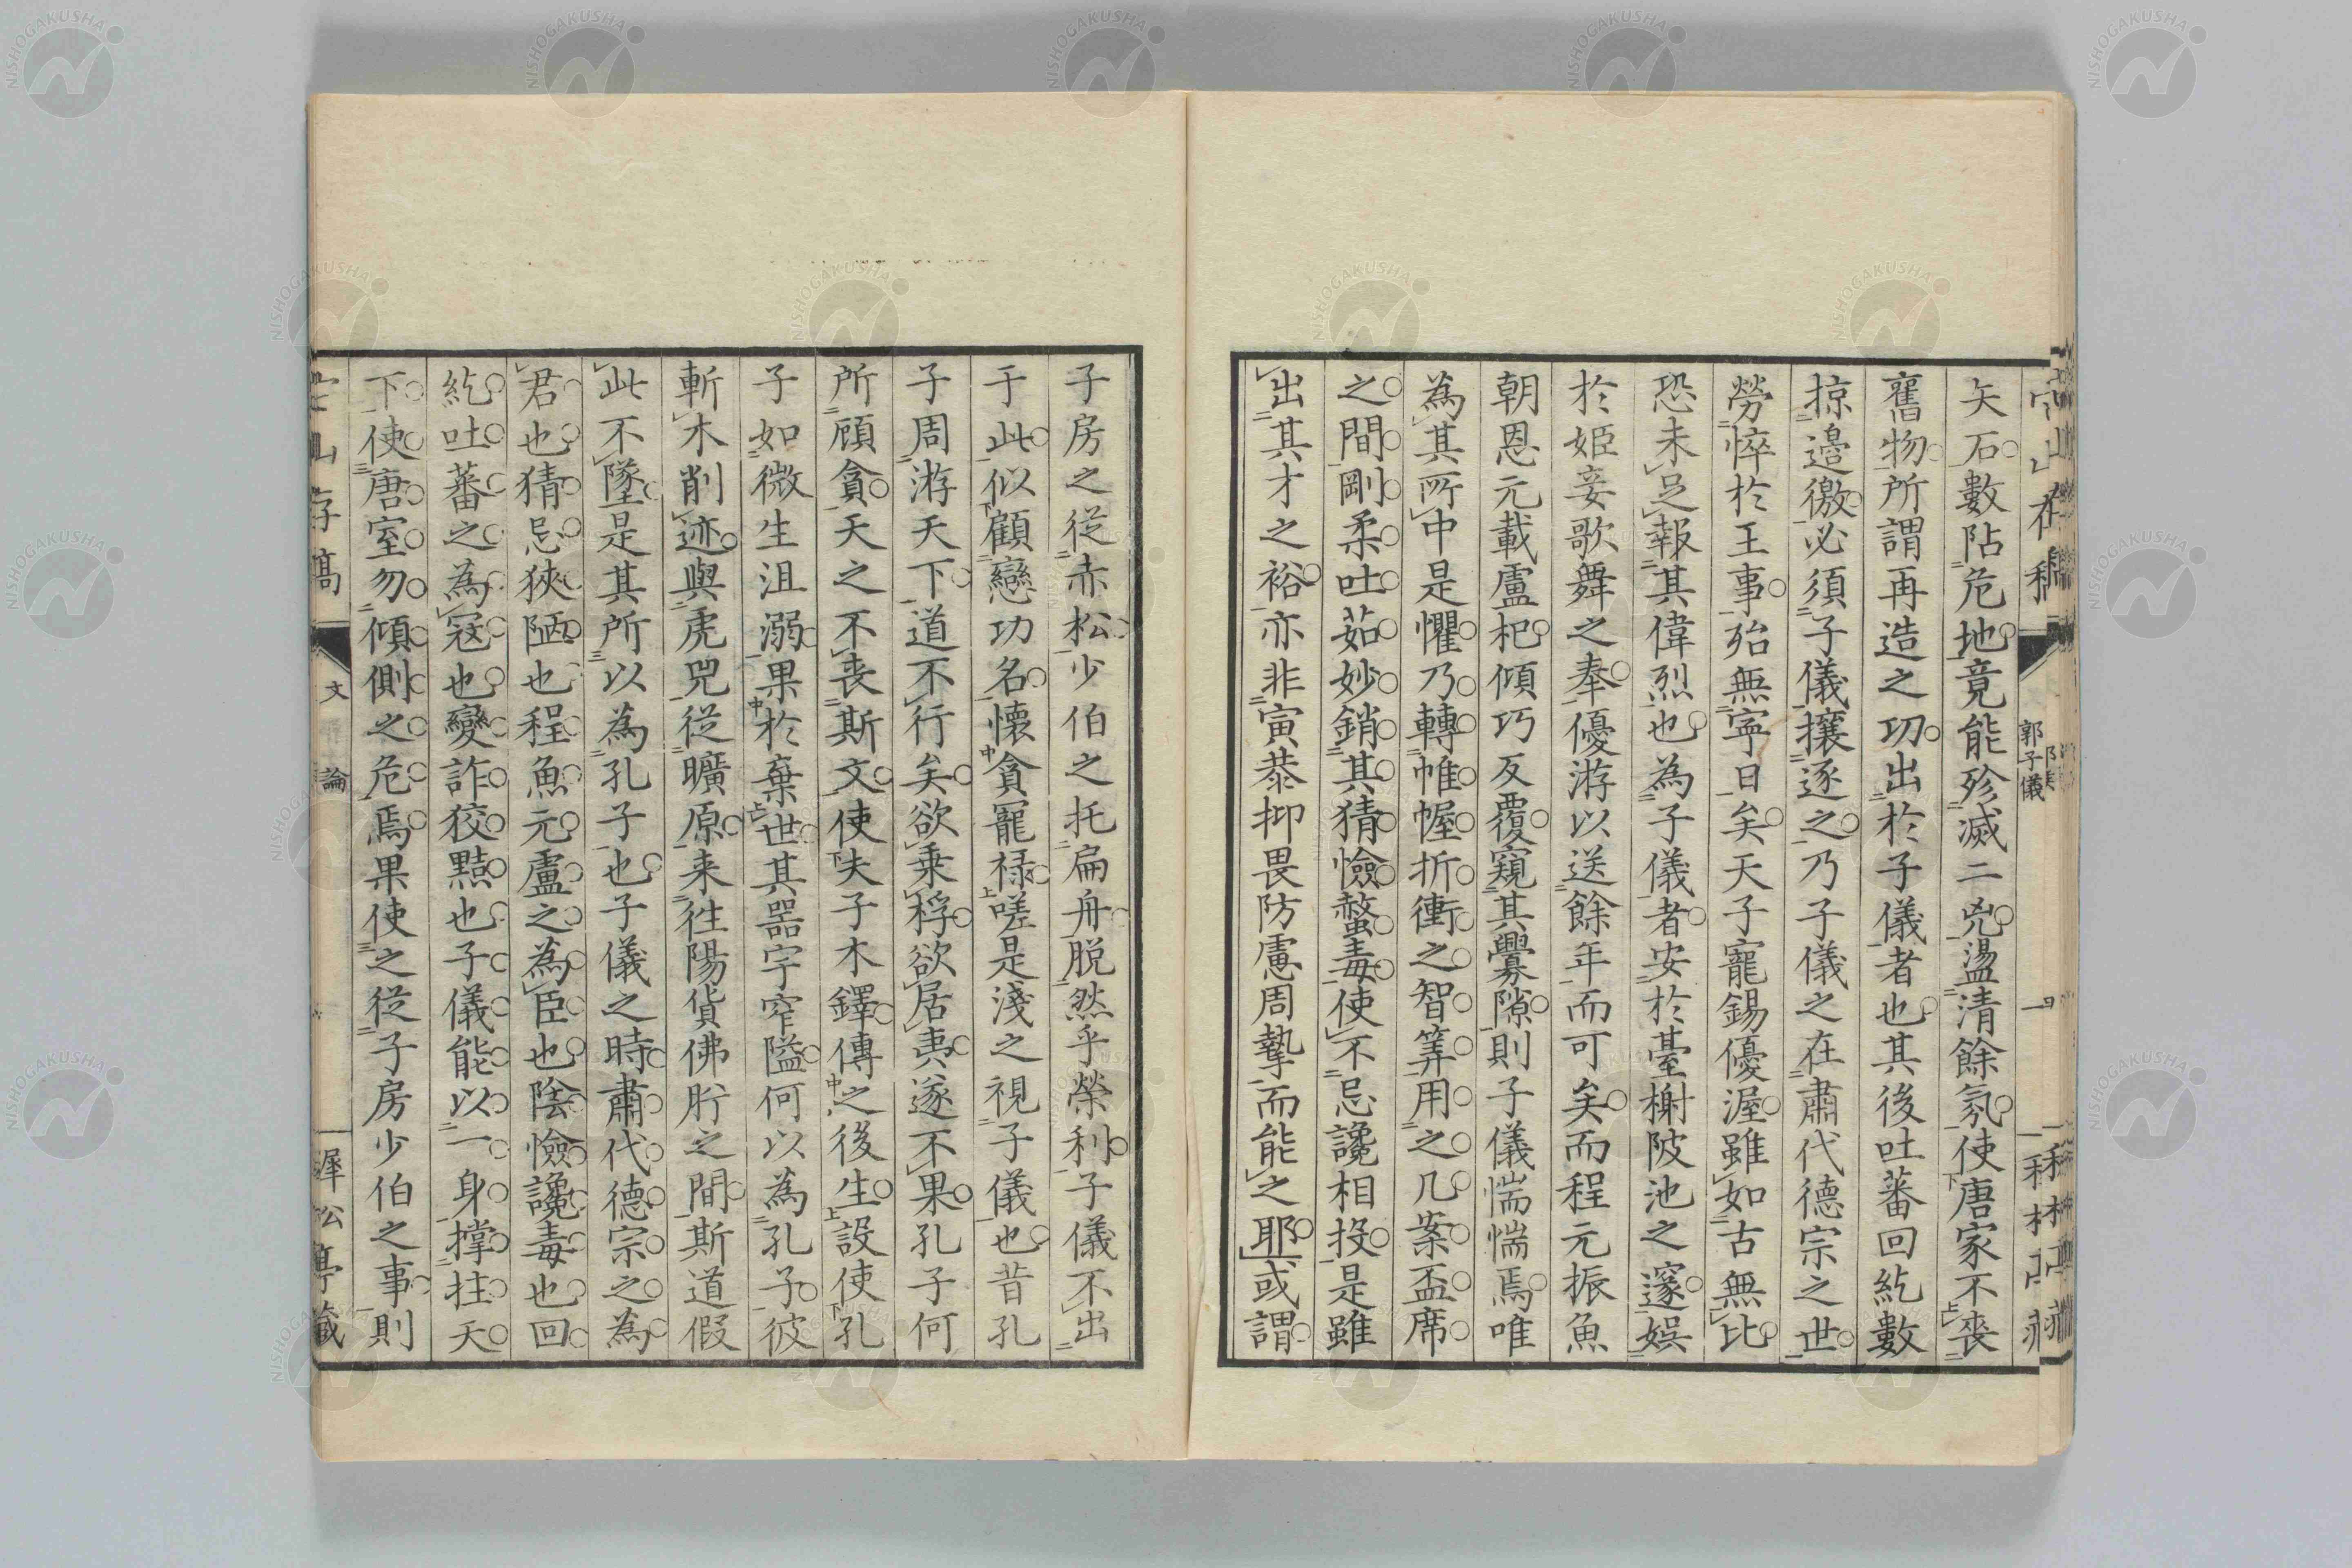 郭子儀
矢石數阽危地竟能殄滅二兇盪清餘氛使唐家不喪
舊物所謂再造之功出於子儀者也其後吐蕃回紇數
掠邉徼必須子儀攘逐之乃子儀之在肅代德宗之世
勞悴於王事殆無寧日矣天子寵錫優渥雖如古無比
恐未足報其偉烈也為子儀者安於臺榭陂池之邃娯
於姫妾歌舞之奉優游以送餘年而可矣而程元振魚
朝恩元載盧杞傾巧反覆窺其釁隙則子儀惴惴焉唯
為其所中是懼乃轉帷幄折衝之智筭用之几案盃席
之間剛柔吐茹妙銷其猜憸螫毒使不忌讒相投是雖
出其才之裕亦非寅恭抑畏防慮周摯而能之耶或謂
子房之從赤松少伯之托扁舟脱然乎榮利子儀不出
于此似顧戀功名懷貪寵禄嗟是淺之視子儀也昔孔
子周游天下道不行矣欲乗桴欲居夷遂不果孔子何
所顧貪天之不喪斯文使夫子木鐸傳之後生設使孔
子如微生沮溺果於棄世其器宇窄隘何以為孔子彼
斬木削迹與虎兕從曠原来往陽貨佛肸之間斯道假
此不墜是其所以為孔子也子儀之時肅代德宗之為
君也猜忌狹陋也程魚元盧之為臣也陰憸讒毒也回
紇吐蕃之為冦也變詐狡黠也子儀能以一身撑拄天
下使唐室勿傾側之危焉果使之從子房少伯之事則
文
論